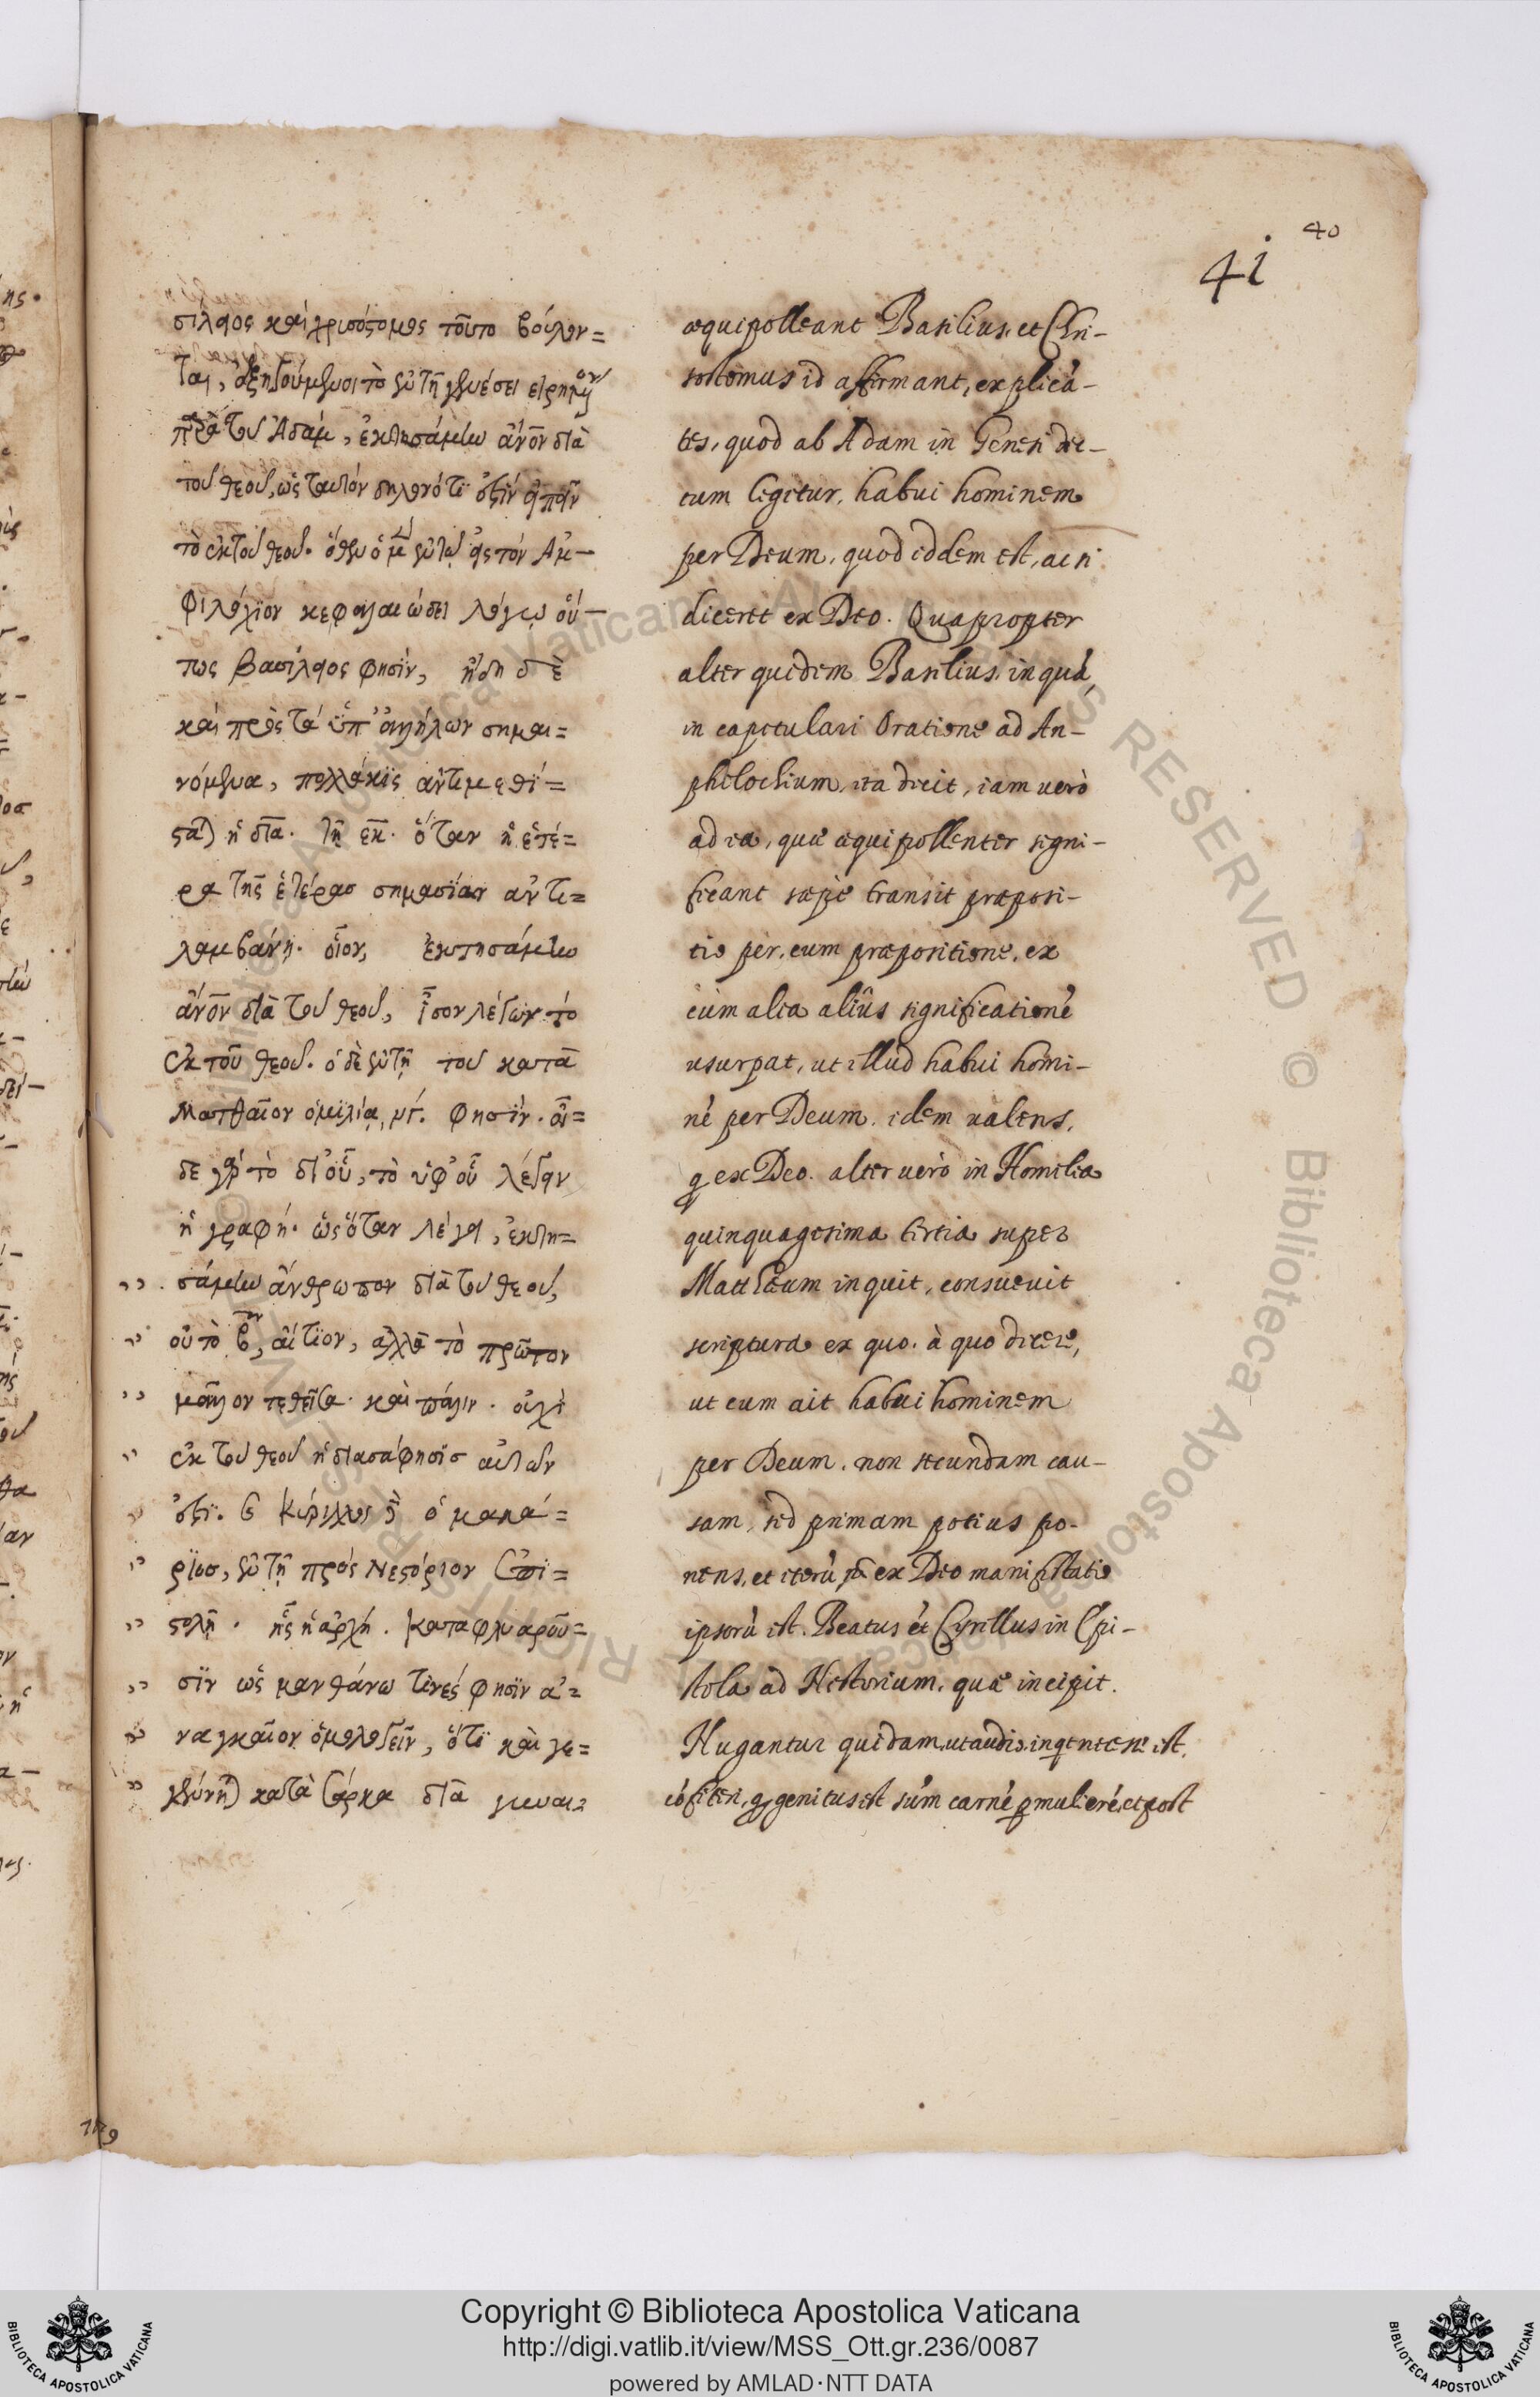 40
41
σίλειος καὶ χρισόστομος τοῦτο βούλον=
ται, ἐξηγούμενοι τὸ ἐν τῇ γενέσει εἰρημένον
παρὰ τοῦ Ἀδάμ, ἐκτησάμην ἄνον διὰ
τοῦ θεοῦ, ὡς ταυτόν δηλονότι ἐστίν εἰπεῖν
τὸ ἐκ τοῦ θεοῦ. ὅθεν ὁ μὲν ἐν τῷ εἰς τόν Ἀμ-
φιλόχιον κεφαλαιώδει λόγῳ οὕ-
τως βασίλειος φησίν, ἤδη δὲ
καὶ πρὸς τὰ ὑπ' ἀλλήλων σημαι=
νόμενα, πολλάκις ἀντιμεθί=
σταται ἡ διὰ. τῇ ἐκ. ὅταν ἡ ἑτέ=
ρα τῆς ἑτέρασ σημασίαν ἀντι=
λαμβάνῃ. οἷον, ἐκτησάμην
ἄνον διὰ τοῦ θεοῦ, ἴσον λέγων τό
ἐκ τοῦ θεοῦ. ὁ δὲ ἐν τῇ τοῦ κατὰ
Ματθαῖον ὁμιλίᾳ, νγ. φησίν. οἶ=
δε γὰρ τὸ δι' οὗ, τὸ ὑφ' οὗ λέγειν
ἡ γραφή. ὡς ὅταν λέγει, ἐκτη=
,, σάμην ἄνθρωπον διὰ τοῦ θεοῦ,
,, οὐ τὸ βον, αἴτιον, ἀλλὰ τὸ πρῶτον
,, μᾶλλον τεθεῖσα. καὶ πάλιν. οὐχὶ
,, ἐκ τοῦ θεοῦ ἡ διασάφησισ αὐτῶν
,, ἐστί. Κύριλλος δὲ ὁ μακά=
,, ρϊοσ, ἐν τῇ πρὸς Νεστόριον ἐπι=
,, στολῇ. ἧς ἡ ἀρχή. καταφλυαροῦ=
,, σϊν ὡς μανθάνω τινές φησϊν ἀ=
,, ναγκαῖον ὁμολογεῖν, ὅτι καὶ γε=
,, γέννηται κατὰ σάρκα διὰ γυναι=
æquipolleant Basilius et Chri-
sostomus id affirmant, explicã-
tes, quod ab Adam in Genesi dic-
tum legitur, habui hominem
per Deum, quod eddem est, ac si
diceret ex Deo. Quapropter
alter quidem Basilius, in quã,
in capitulari Oratione ad An-
philochium, ita dicit, iam uerò
ad ea, quæ æquipollenter signi-
ficant sæpè transit præposi-
tio per, cum præpositione, ex
cùm alia alius significationẽ
usurpat, ut illud habui homi-
nẽ per Deum. idem ualens,
q ex Deo. alter uerò in Homilia
quinquagesima tertia super
Matthæum inquit, consueuit
scriptura ex quo. à quo dicere,
ut cum ait habui hominem
per Deum. non secundam cau-
sam, sed primam potius po-
nens, et iterũ ex Deo manifestatio
ipsorũ est. Beatus ẽt Cyrillus in Epi-
stola ad Nestorium, quæ incipit.
Nugantur quidam, ut audio, inqt necesse est.
cõfiteri, q genitus est sum carnẽ p mulierẽ, et post
Copyright © Biblioteca Apostolica Vaticana
http://digi.vatlib.it/view/MSS_Ott.gr.236/0087
powered by AMLAD·NTT DATA